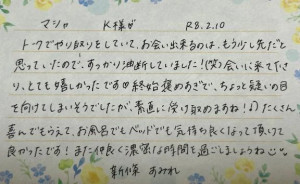 マシャ K様ゟ R8.2.10
トークでやり取りをしていて、お会い出来るのは、もう少し先だと
思っていたので、すっかり油断していました!(笑)会いに来て下さ
り、とても嬉しかったです♡終始褒めあごで、ちょっと疑いの目
を向けてしまいそうでしたが、素直に受け取めますね!♪たくさん
喜んでもらえて、お風呂でもベッドでも気持ち良くなって頂けて
良かったです!また仲良く濃密な時間を過ごしましょうね
新條 あみれ